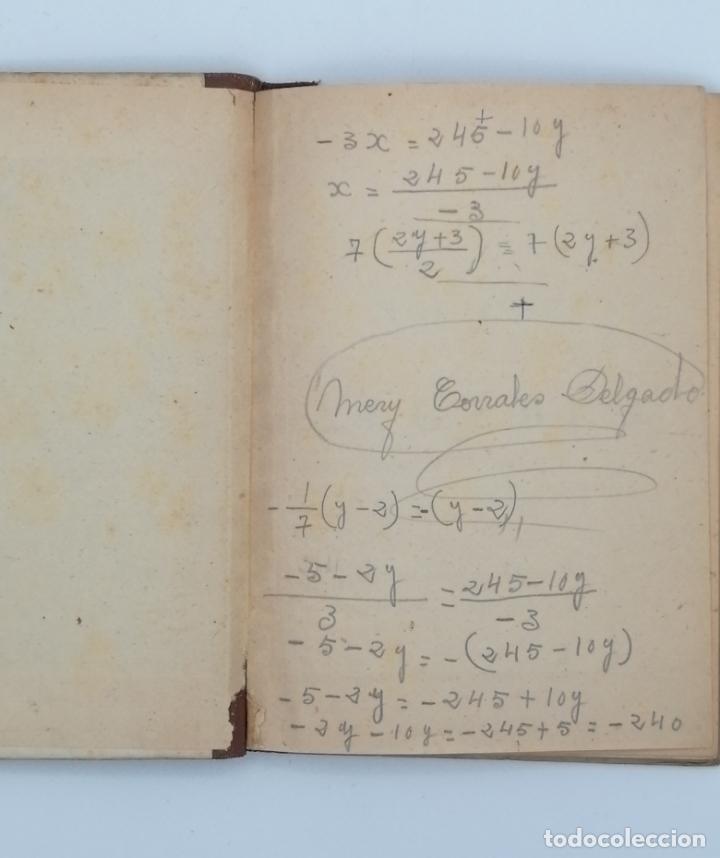 -3x = 245 - 10y
x = (245 - 10y)/-3
7((2y+3)/2) = 7(2y+3)
+
Mery Corrales Delgado
-1/7(y-2) = -(y-2)
(-5-2y)/3 = (245-10y)/-3
-5-2y = -(245-10y)
-5-2y = -245+10y
-2y-10y = -245+5 = -240
todocoleccion